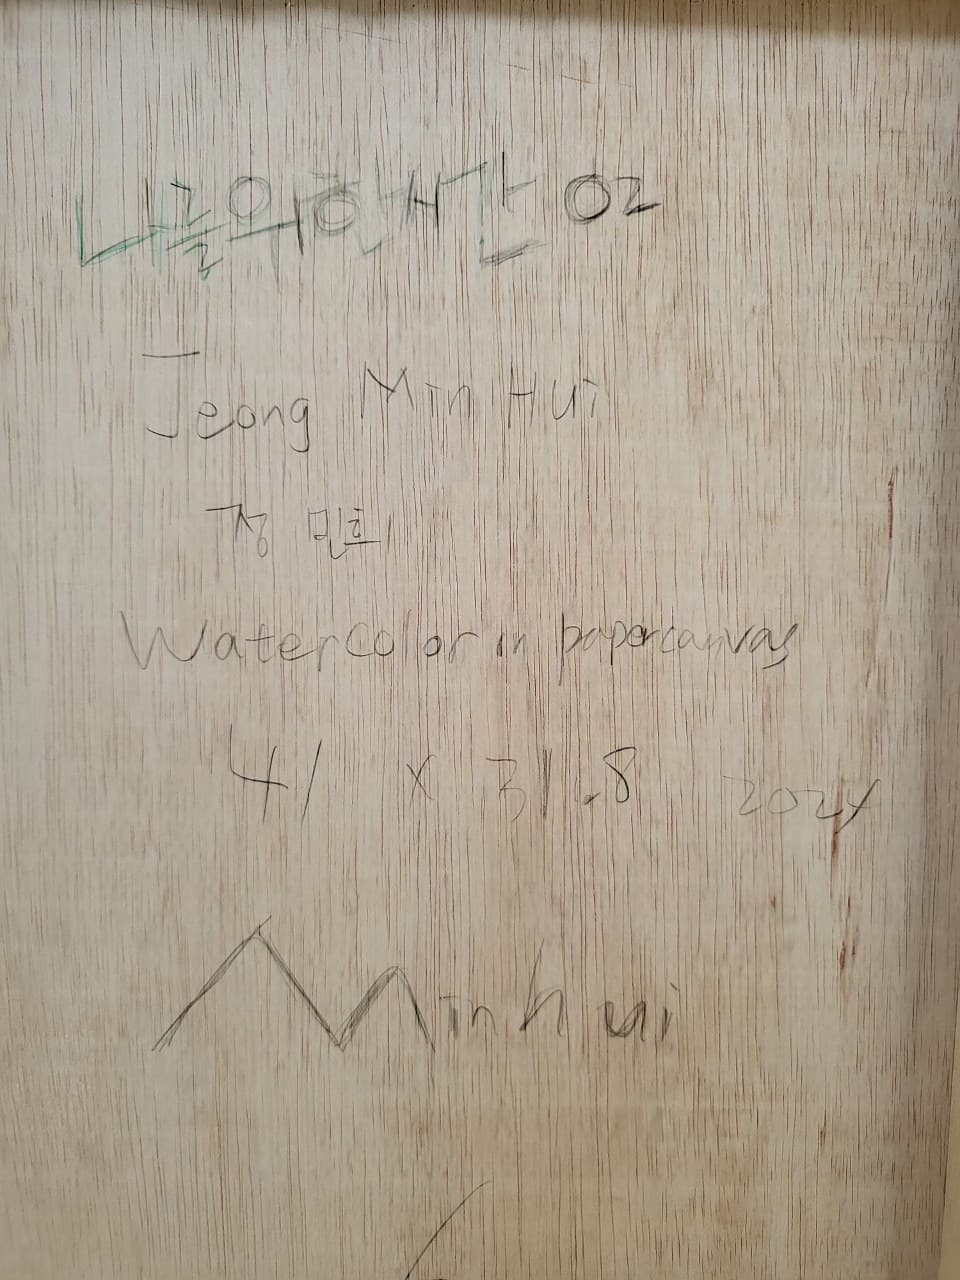 나물의 한시간 02
Jeong Min Hui
정 민희
Watercolor in papercanvas
41 x 31.8 2024
Minhui